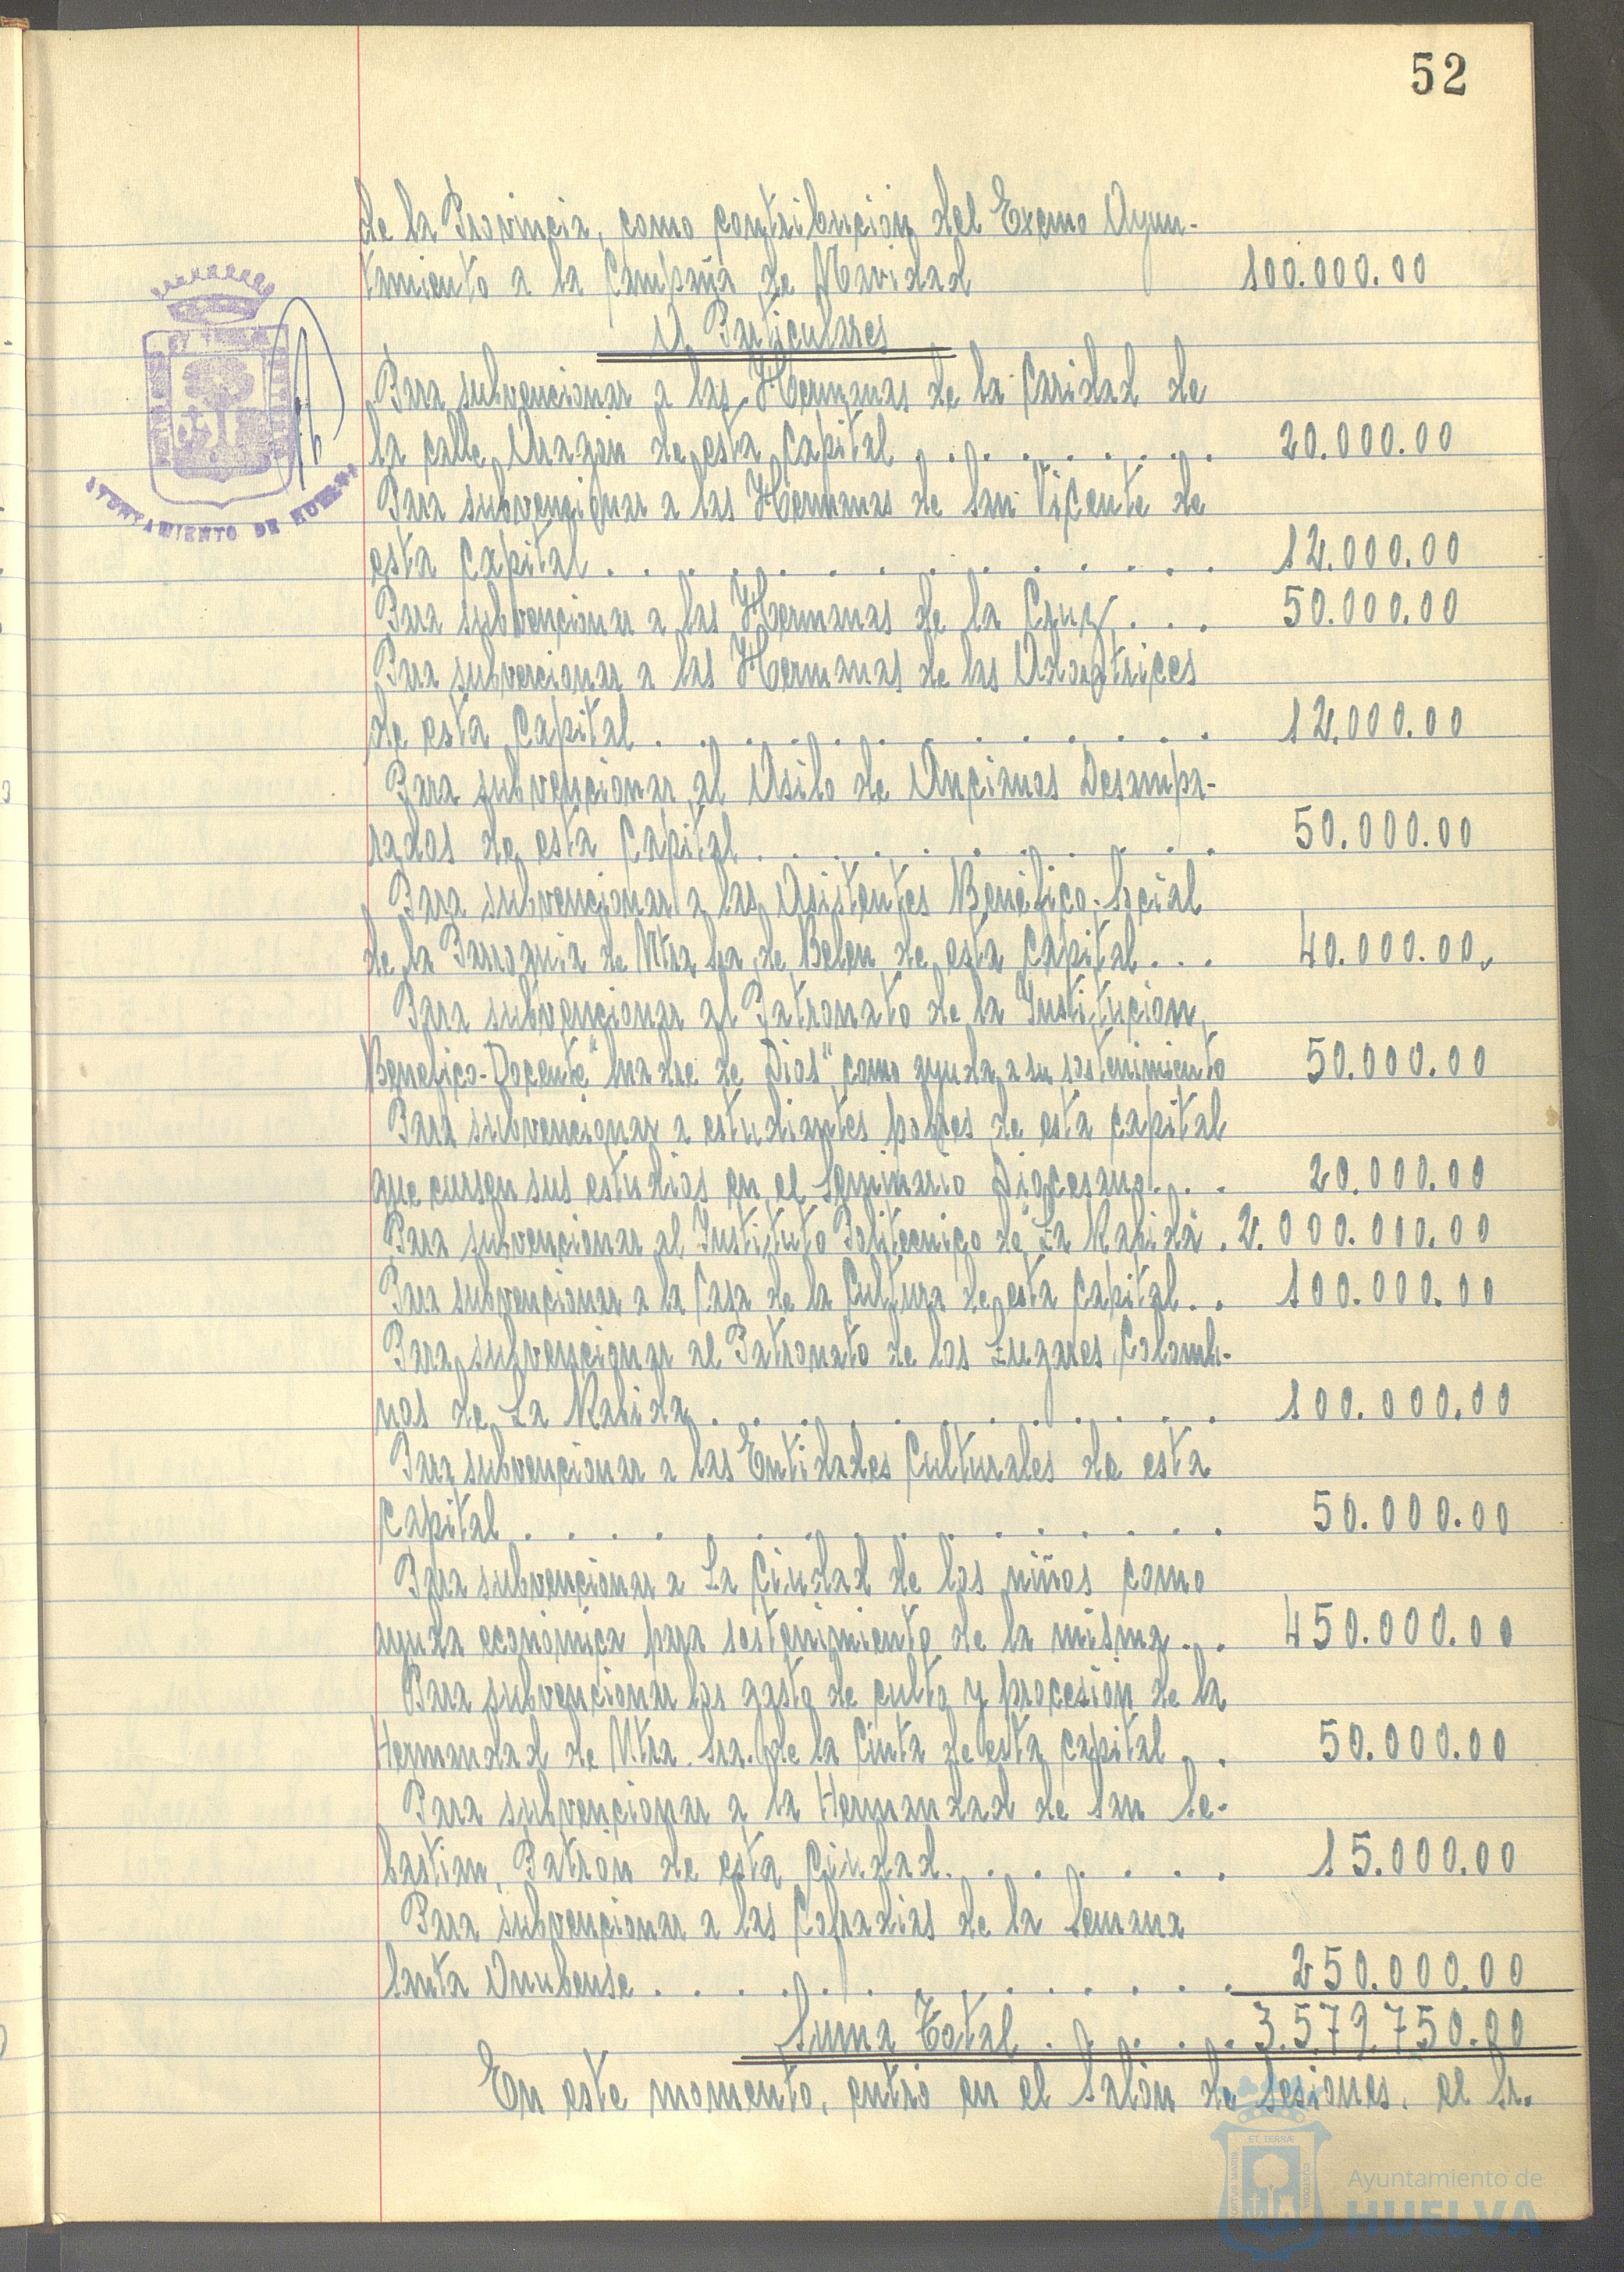 52
de la Provincia, como contribución del Excmo Ayun-
tamiento a la Campaña de Navidad 100.000.00
A Particulares
Para subvencionar a las Hermanas de la Caridad de
la calle Aragon de esta capital . . . . . . . . 20.000.00
Para subvencionar a las Hermanas de San Vicente de
esta capital . . . . . . . . . . . . . 12.000.00
Para subvencionar a las Hermanas de la Cruz . . . 50.000.00
Para subvencionar a las Hermanas de las Adoratrices
de esta capital . . . . . . . . . . . . 12.000.00
Para subvencionar al Asilo de Ancianos Desampa-
rados de esta Capital . . . . . . . . . . 50.000.00
Para subvencionar a las Asistentes Benéfico-Social
de la Parroquia de Ntra Sra de Belen de esta capital . . . 40.000.00
Para subvencionar al Patronato de la Institución
Benefico-Docente "Madre de Dios" como ayuda a su sostenimiento 50.000.00
Para subvencionar a estudiantes pobres de esta capital
que cursen sus estudios en el Seminario Diocesano . . . 20.000.00
Para subvencionar al Instituto Politecnico de "La Rabida" . 2.000.000.00
Para subvencionar a la Casa de la Cultura de esta capital . . 100.000.00
Para subvencionar al Patronato de los Lugares Colombi-
nos de La Rabida . . . . . . . . . . . 100.000.00
Para subvencionar a las Entidades Culturales de esta
capital . . . . . . . . . . . . . . 50.000.00
Para subvencionar a La Ciudad de los niños como
ayuda económica para sostenimiento de la misma . . 450.000.00
Para subvencionar los gasto de culto y procesión de la
Hermandad de Ntra. Sra. de la Cinta de esta capital . . 50.000.00
Para subvencionar a la Hermandad de San Se-
bastian, Patrón de esta ciudad . . . . . . . 15.000.00
Para subvencionar a las Cofradias de la Semana
Santa Onubense . . . . . . . . . . . . 250.000.00
Suma Total . . . . . 3.579.750.00
En este momento, entró en el Salón de Sesiones, el Sr.
AYUNTAMIENTO DE HUELVA
Ayuntamiento de
HUELVA